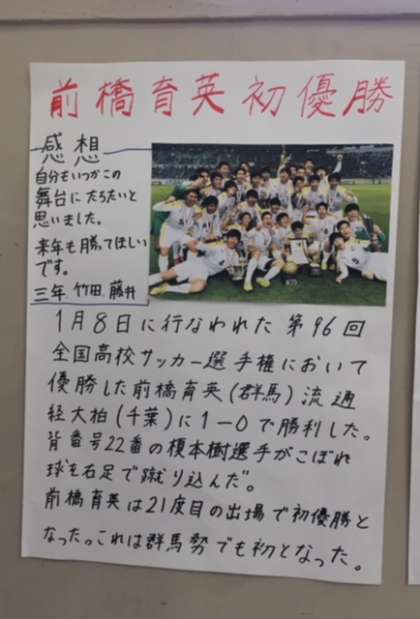 前橋育英初優勝
感想
自分もいつかこの
舞台にたちたいと
思いました。
来年も勝ってほしい
です。
三年 竹田 藤井
1月8日に行なわれた第96回
全国高校サッカー選手権において
優勝した前橋育英(群馬)流通
経大柏(千葉)に1-0で勝利した。
背番号22番の榎本樹選手がこぼれ
球を右足で蹴り込んだ。
前橋育英は21度目の出場で初優勝と
なった。これは群馬勢でも初となった。